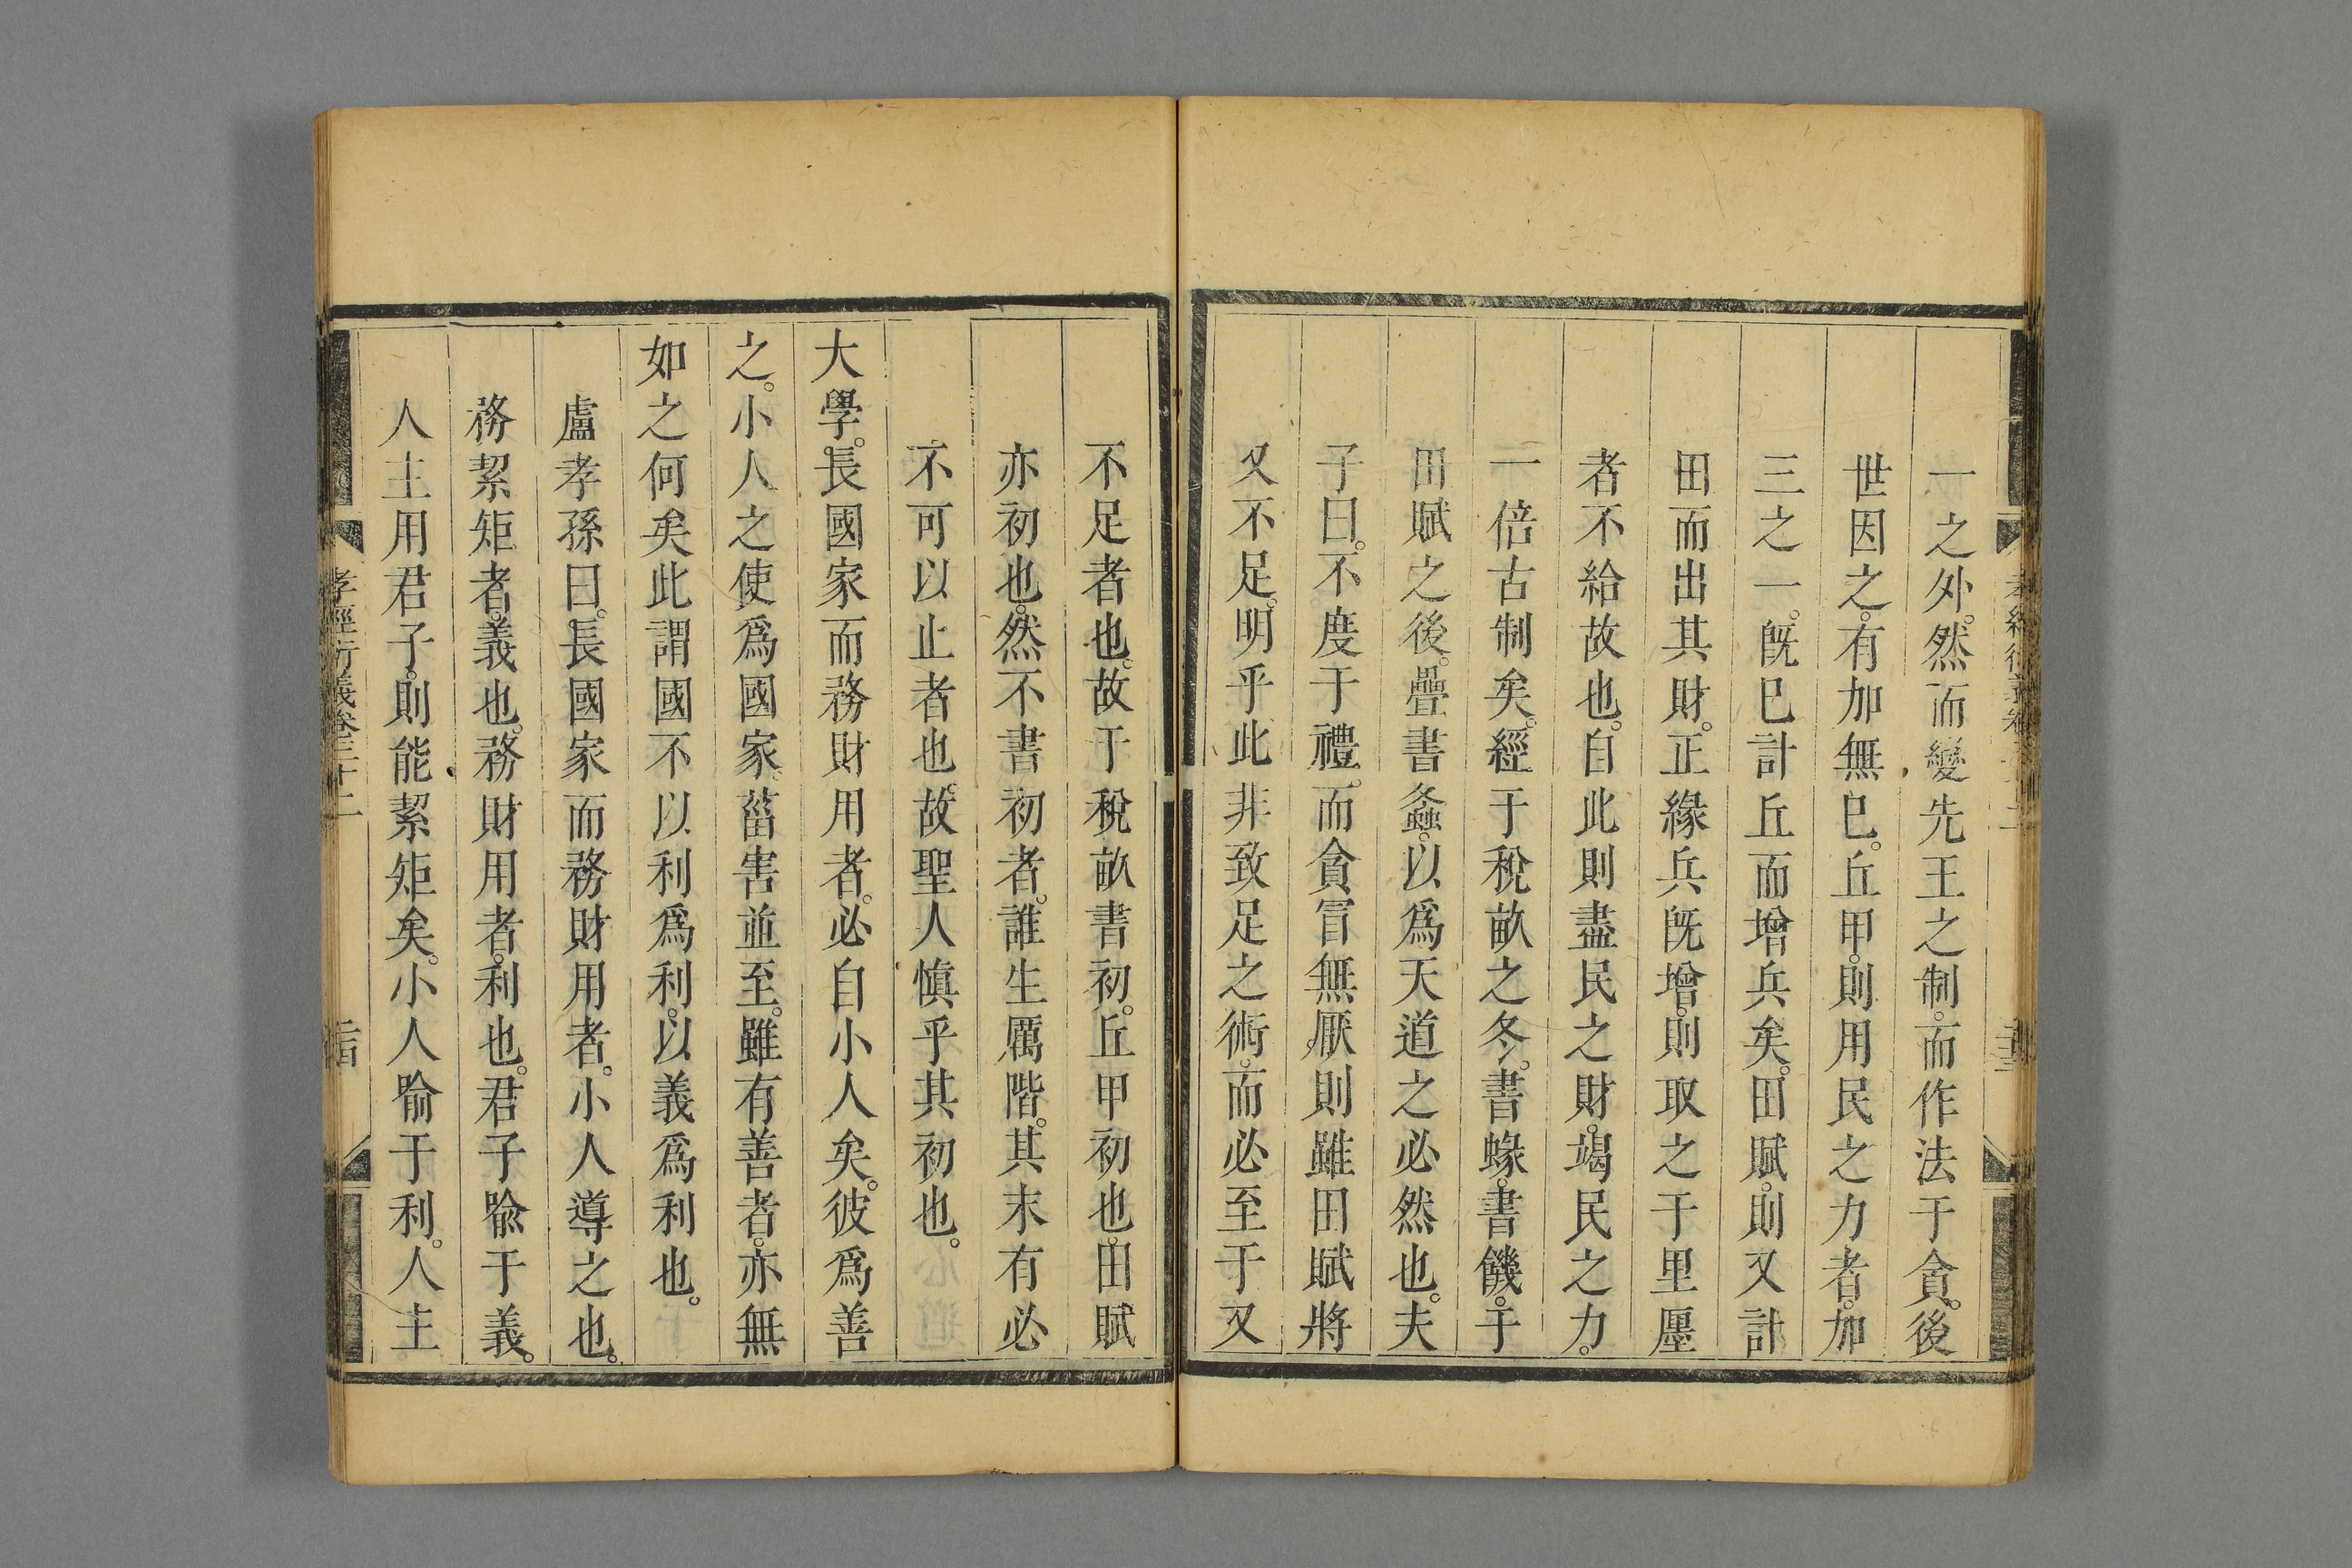 一之外。然而變先王之制。而作法于貪。後
世因之。有加無已。丘甲。則用民之力者。加
三之一。旣已計丘而增兵矣。田賦。則又計
田而出其財。正緣兵旣增。則取之于里廛
者不給故也。自此則盡民之財。竭民之力。
一倍古制矣。經于稅畝之冬。書蝝。書饑。于
田賦之後。疊書螽。以爲天道之必然也。夫
子曰。不度于禮。而貪冒無厭。則雖田賦將
又不足。明乎此非致足之術。而必至于又
不足者也。故于稅畝書初。丘甲初也。田賦
亦初也。然不書初者。誰生厲階。其末有必
不可以止者也。故聖人愼乎其初也。
大學。長國家而務財用者。必自小人矣。彼爲善
之。小人之使爲國家。菑害並至。雖有善者。亦無
如之何矣此謂國不以利爲利。以義爲利也。
盧孝孫曰。長國家而務財用者。小人導之也。
務絜矩者。義也。務財用者。利也。君子喩于義。
人主用君子。則能絜矩矣。小人喩于利。人主
孝經衍義卷三十二